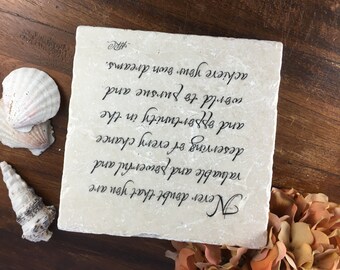 Never doubt that you are
valuable and powerful and
deserving of every chance
and opportunity in the
world to pursue and
achieve your own dreams.
HRC